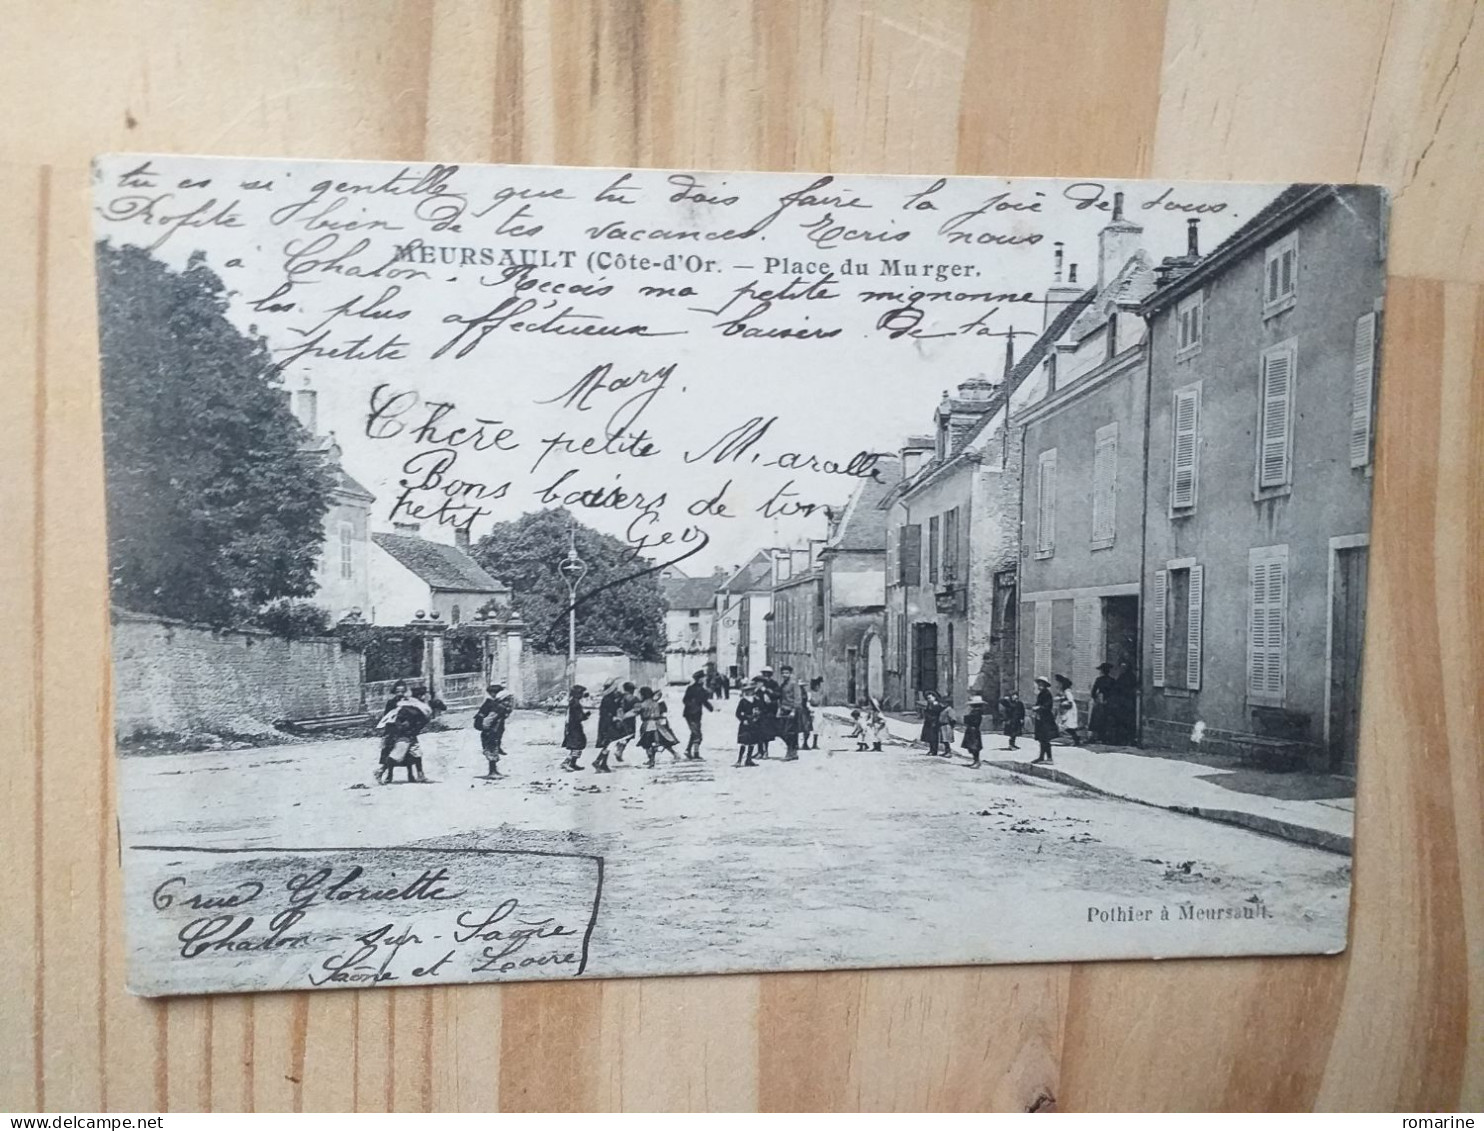 tu es si gentille que tu dois faire la joie de tous.
Profite bien de tes vacances. Ecris nous
à Chalon. Reçois ma petite mignonne
MEURSAULT (Côte-d'Or. — Place du Murger.
les plus affectueux baisers de ta
petite
Mary.
Chère petite
Bons baisers de ton
petit Geo
6 rue Gloriette
Chalon-sur-Saône
Saône et Loire
Pothier à Meursault.
delcampe.net
romarine